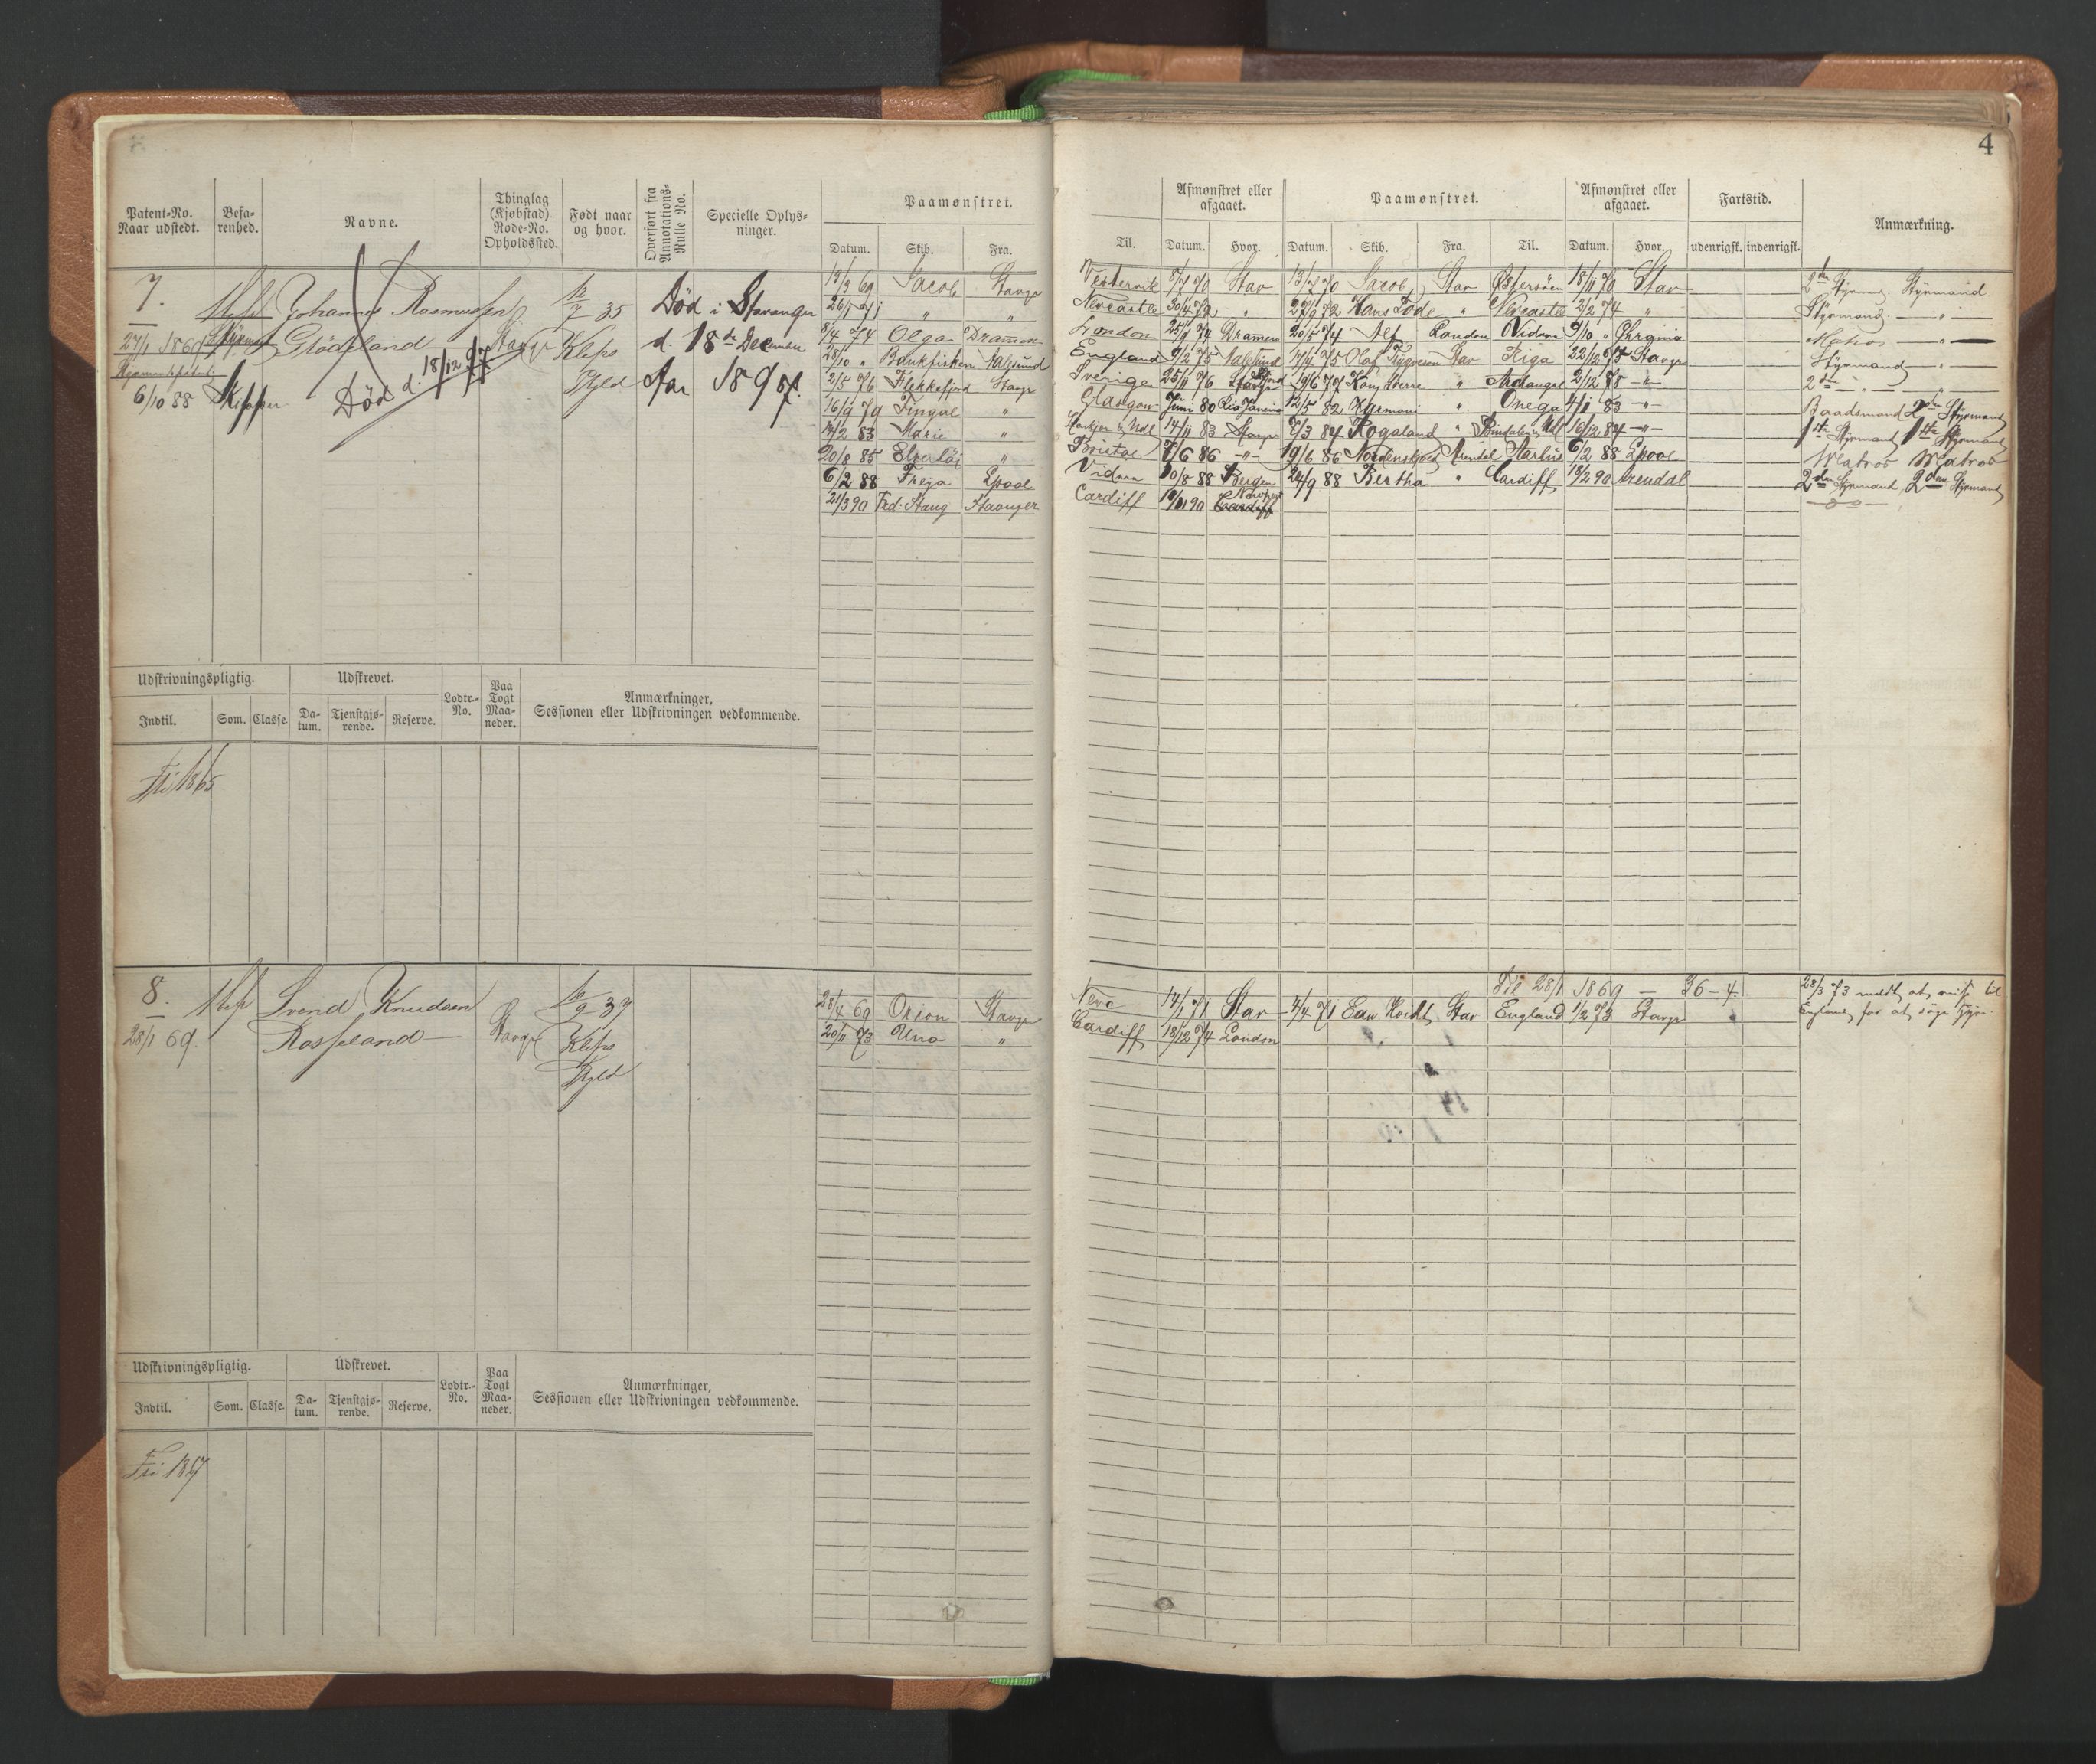 4
Patent-No. Naar udstedt.
Befarenhed.
Navne.
Thinglag (Kjøbstad) Rode-No. Opholdssted.
Født naar og hvor.
Overført fra Annotations-Rulle No.
Specielle Oplysninger.
Paamønstret.
Datum. Skib. Fra.
Til.
Afmønstret eller afgaaet.
Datum. Hvor.
Paamønstret.
Datum. Skib. Fra. Til.
Afmønstret eller afgaaet.
Datum. Hvor.
Fartstid.
udenrigsk. indenrigsk.
Anmærkning.
7.
27/1 1869
6/10 88 Skipper
Johannes Rasmussen
Stavgr
Død d. 18/12 97
35
Klep
Død i Stavanger
d. 18de December
Aar 1897.
13/2 69 Jacob Stavgr
26/1 71 " "
8/4 74 Olga Drammen
28/10 "
2/5 76 Flekkefjord Stavgr
16/9 79 Fingal "
83 Marie "
20/8 85 "
6/2 88 Freja Lpool
21/3 90 Fred: Stang Stavanger
Vestervik 70 Stav 70 Jacob Stav Østersøen 18/11 70 Stav
Newcastle 30/4 72 " 27/9 72 Hans Tode " Newcastle 2/2 74 "
London 74 Drammen 20/5 74 Alf London 9/10 "
England 9/2 75 75 Olaf Trygveson Stav Riga 22/12 75 Stavgr
Sverige 25/11 76 19/6 77 Kong Sverre " Archangel 2/12 78 - " -
Glasgow Juni 80 Rio Janeiro 12/5 82 " Onega 4/1 83 - " -
14/11 83 Stavgr 7/3 84 Rogaland " 16/12 84 - " -
Bristol 7/6 86 - " - 19/6 86 Nordenskjold Arendal 6/2 88 Lpool
10/8 88 Bergen 24/9 88 Bertha " Cardiff 13/2 90 Arendal
Cardiff 90
2den Styrmand. Styrmand
Styrmand. - " -
- " -
Styrmand - " -
2den - " -
Baadsmand 2den Styrmand
1ste Styrmand 1ste Styrmand
Matros Matros
2den Styrmand 2den Styrmand
Udskrivningspligtig.
Udskrevet.
Indtil. Som. Classe.
Datum. Tjenstgjørende. Reserve.
Lodtr.-No.
Paa Togt Maaneder.
Anmærkninger, Sessionen eller Udskrivningen vedkommende.
Fri 1865
8.
28/1 69.
Svend Knudsen
Stavgr
37
Klep
28/4 69 Orion Stavgr
20/11 73 Una "
Til 28/1 1869 - 36 - 4
14/1 71 Stav 4/4 71 Stav England 1/2 73 Stavgr
Cardiff 18/12 74 London
28/3 73
England for at søge
Udskrivningspligtig.
Udskrevet.
Indtil. Som. Classe.
Datum. Tjenstgjørende. Reserve.
Lodtr.-No.
Paa Togt Maaneder.
Anmærkninger, Sessionen eller Udskrivningen vedkommende.
Fri 1867